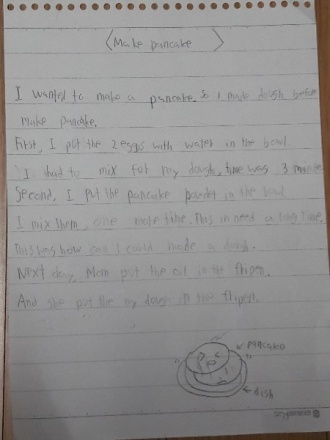 < Make pancake >
I wanted to make a pancake. So I made dough before
make pancake.
First, I put the 2 eggs with water in the bowl.
I had to mix for my dough, time was 3 minutes
Second, I put the pancake powder in the bowl
I mix them, one more time. This in need a long time.
This is how can I could made a dough.
Next day, Mom put the oil in the
And she put the my dough in the
pancake
dish